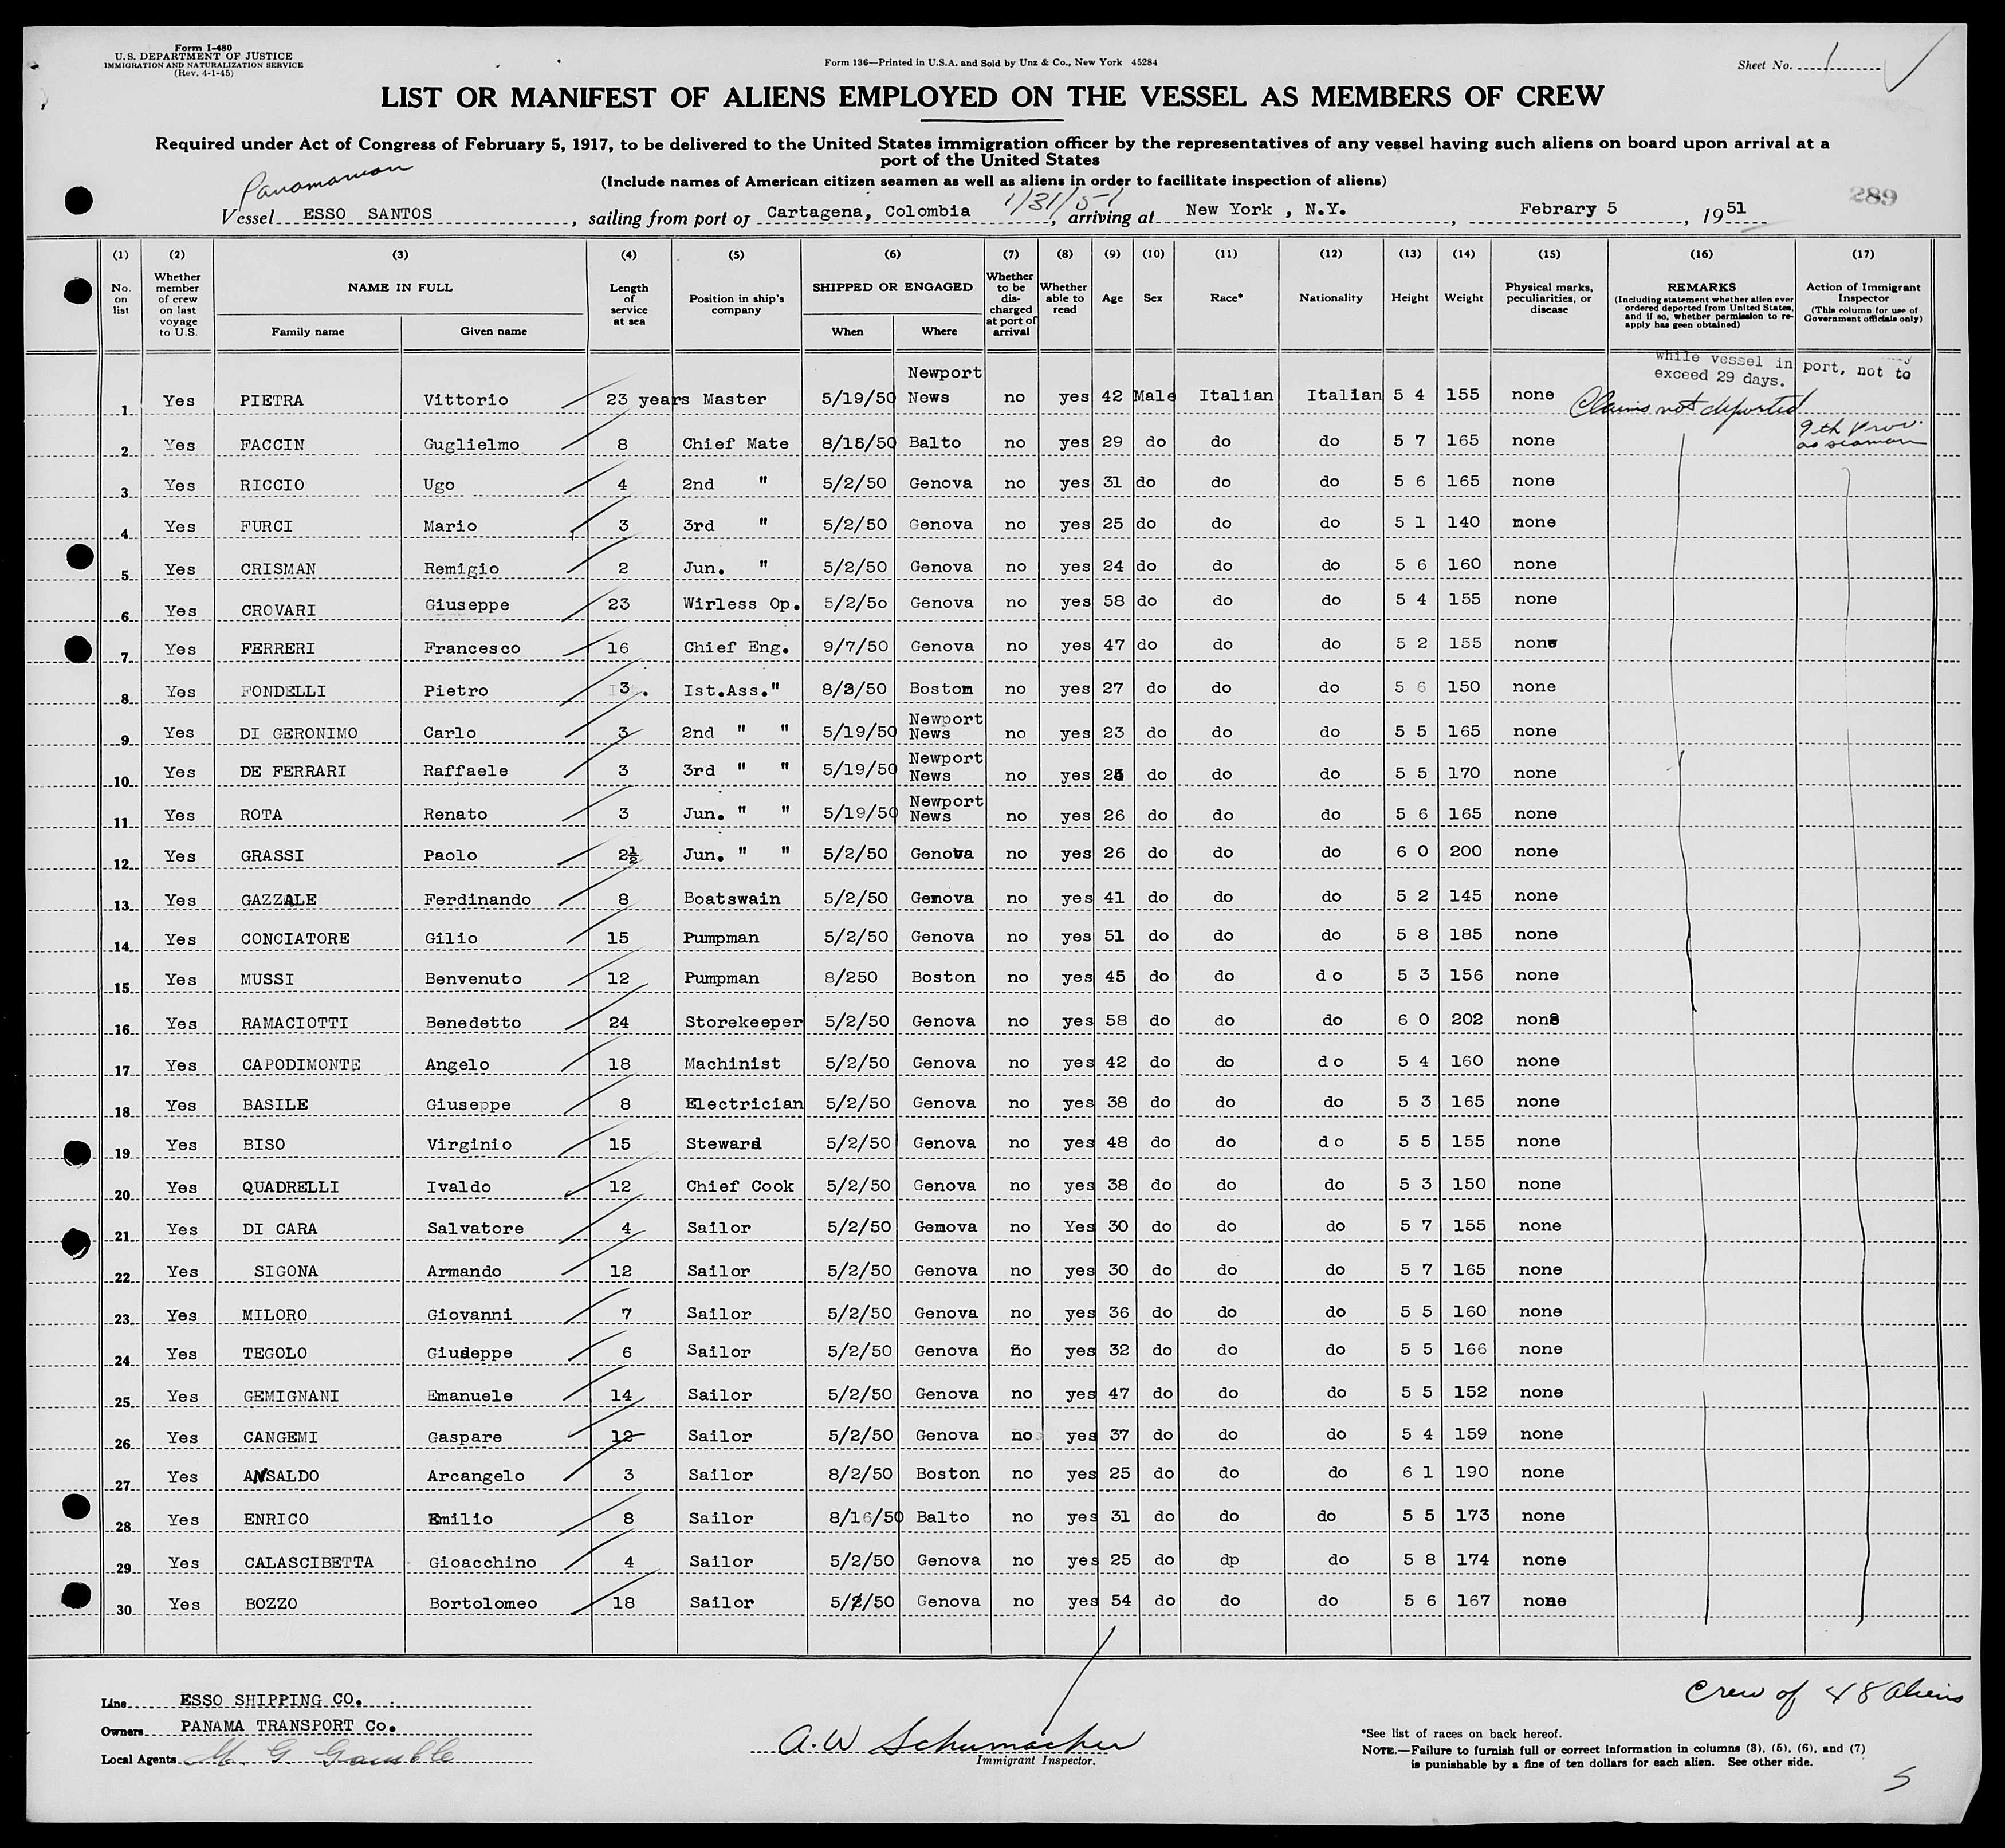 Form I-480
U. S. DEPARTMENT OF JUSTICE
IMMIGRATION AND NATURALIZATION SERVICE
(Rev. 4-1-45)
Form 136—Printed in U.S.A. and Sold by Unz & Co., New York 45284
Sheet No. 1
LIST OR MANIFEST OF ALIENS EMPLOYED ON THE VESSEL AS MEMBERS OF CREW
Required under Act of Congress of February 5, 1917, to be delivered to the United States immigration officer by the representatives of any vessel having such aliens on board upon arrival at a
port of the United States
(Include names of American citizen seamen as well as aliens in order to facilitate inspection of aliens)
Panamanian
289
Vessel ESSO SANTOS, sailing from port of Cartagena, Colombia 1/31/51, arriving at New York , N.Y., Febrary 5, 1951
(1) (2) (3) (4) (5) (6) (7) (8) (9) (10) (11) (12) (13) (14) (15) (16) (17)
No. on list
Whether member of crew on last voyage to U.S.
NAME IN FULL
Family name Given name
Length of service at sea
Position in ship's company
SHIPPED OR ENGAGED
When Where
Whether to be discharged at port of arrival
Whether able to read
Age Sex Race* Nationality Height Weight
Physical marks, peculiarities, or disease
REMARKS
(Including statement whether alien ever ordered deported from United States, and if so, whether permission to re-apply has geen obtained)
Action of Immigrant Inspector
(This column for use of Government officials only)
while vessel in port, not to
exceed 29 days.
Claims not deported
9th Prov.
as seaman
1 Yes PIETRA Vittorio 23 years Master 5/19/50 Newport News no yes 42 Male Italian Italian 5 4 155 none
2 Yes FACCIN Guglielmo 8 Chief Mate 8/16/50 Balto no yes 29 do do do 5 7 165 none
3 Yes RICCIO Ugo 4 2nd " 5/2/50 Genova no yes 31 do do do 5 6 165 none
4 Yes FURCI Mario 3 3rd " 5/2/50 Genova no yes 25 do do do 5 1 140 none
5 Yes CRISMAN Remigio 2 Jun. " 5/2/50 Genova no yes 24 do do do 5 6 160 none
6 Yes CROVARI Giuseppe 23 Wirless Op. 5/2/5o Genova no yes 58 do do do 5 4 155 none
7 Yes FERRERI Francesco 16 Chief Eng. 9/7/50 Genova no yes 47 do do do 5 2 155 none
8 Yes FONDELLI Pietro 3. Ist.Ass." 8/2/50 Boston no yes 27 do do do 5 6 150 none
9 Yes DI GERONIMO Carlo 3 2nd " " 5/19/50 Newport News no yes 23 do do do 5 5 165 none
10 Yes DE FERRARI Raffaele 3 3rd " " 5/19/50 Newport News no yes do do do 5 5 170 none
11 Yes ROTA Renato 3 Jun. " " 5/19/50 Newport News no yes 26 do do do 5 6 165 none
12 Yes GRASSI Paolo 2½ Jun. " " 5/2/50 Genova no yes 26 do do do 6 0 200 none
13 Yes GAZZALE Ferdinando 8 Boatswain 5/2/50 Genova no yes 41 do do do 5 2 145 none
14 Yes CONCIATORE Gilio 15 Pumpman 5/2/50 Genova no yes 51 do do do 5 8 185 none
15 Yes MUSSI Benvenuto 12 Pumpman 8/250 Boston no yes 45 do do d o 5 3 156 none
16 Yes RAMACIOTTI Benedetto 24 Storekeeper 5/2/50 Genova no yes 58 do do do 6 0 202 none
17 Yes CAPODIMONTE Angelo 18 Machinist 5/2/50 Genova no yes 42 do do d o 5 4 160 none
18 Yes BASILE Giuseppe 8 Electrician 5/2/50 Genova no yes 38 do do do 5 3 165 none
19 Yes BISO Virginio 15 Steward 5/2/50 Genova no yes 48 do do d o 5 5 155 none
20 Yes QUADRELLI Ivaldo 12 Chief Cook 5/2/50 Genova no yes 38 do do do 5 3 150 none
21 Yes DI CARA Salvatore 4 Sailor 5/2/50 Genova no Yes 30 do do do 5 7 155 none
22 Yes SIGONA Armando 12 Sailor 5/2/50 Genova no yes 30 do do do 5 7 165 none
23 Yes MILORO Giovanni 7 Sailor 5/2/50 Genova no yes 36 do do do 5 5 160 none
24 Yes TEGOLO Giuseppe 6 Sailor 5/2/50 Genova no yes 32 do do do 5 5 166 none
25 Yes GEMIGNANI Emanuele 14 Sailor 5/2/50 Genova no yes 47 do do do 5 5 152 none
26 Yes CANGEMI Gaspare 12 Sailor 5/2/50 Genova no yes 37 do do do 5 4 159 none
27 Yes ANSALDO Arcangelo 3 Sailor 8/2/50 Boston no yes 25 do do do 6 1 190 none
28 Yes ENRICO Emilio 8 Sailor 8/16/50 Balto no yes 31 do do do 5 5 173 none
29 Yes CALASCIBETTA Gioacchino 4 Sailor 5/2/50 Genova no yes 25 do dp do 5 8 174 none
30 Yes BOZZO Bortolomeo 18 Sailor 5/2/50 Genova no yes 54 do do do 5 6 167 none
Line ESSO SHIPPING CO.
Owners PANAMA TRANSPORT Co.
Local Agents M. G. Gamble
A. W Schumacher
Immigrant Inspector.
Crew of 48 aliens
*See list of races on back hereof.
NOTE.—Failure to furnish full or correct information in columns (3), (5), (6), and (7)
is punishable by a fine of ten dollars for each alien. See other side.
5